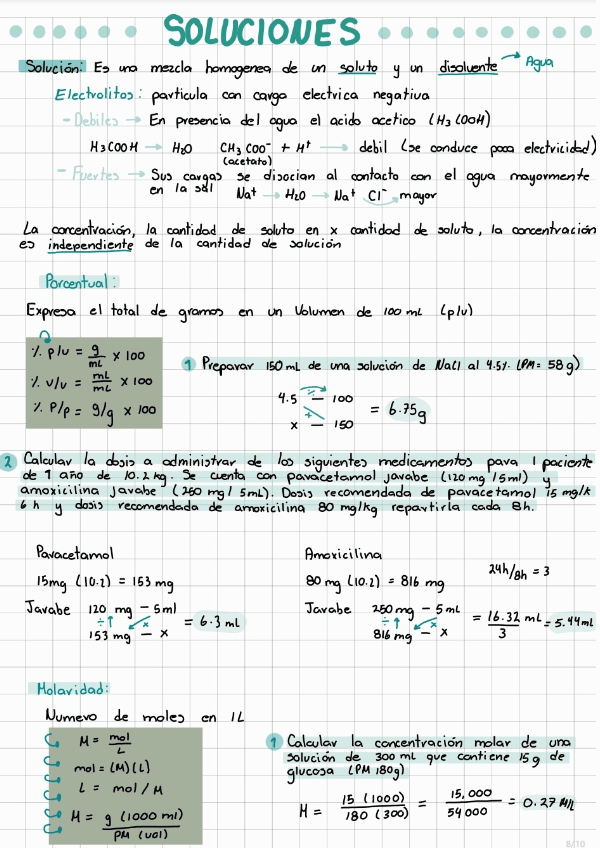 SOLUCIONES
Solución: Es una mezcla homogenea de un soluto y un disolvente → Agua
Electrolitos: particula con carga electrica negativa
- Debiles → En presencia del agua el acido acetico (H3COOH)
H3COOH → H2O CH3COO⁻ + H⁺ → debil (se conduce poca electricidad)
(acetato)
- Fuertes → Sus cargas se disocian al contacto con el agua mayormente
en la sal Na⁺ → H2O → Na⁺ Cl⁻ mayor
La concentración, la cantidad de soluto en x cantidad de soluto, la concentración
es independiente de la cantidad de solución
Porcentual:
Expresa el total de gramos en un Volumen de 100 mL (p/v)
% p/v = g/mL x 100
% v/v = mL/mL x 100
% P/p = g/g x 100
1 Preparar 150 mL de una solución de NaCl al 4.5%. (PM= 58 g)
4.5 ÷ — 100
x + — 150
= 6.75g
2 Calcular la dosis a administrar de los siguientes medicamentos para 1 paciente
de 1 año de 10.2 kg. Se cuenta con paracetamol jarabe (120 mg /5ml) y
amoxicilina jarabe (250 mg/ 5mL). Dosis recomendada de paracetamol 15 mg/k
6 h y dosis recomendada de amoxicilina 80 mg/kg repartirla cada 8h.
Paracetamol
15mg (10.2) = 153 mg
Jarabe 120 mg — 5ml
÷ ↑ x
153 mg — x
= 6.3 mL
Amoxicilina
80 mg (10.2) = 816 mg
24h/8h = 3
Jarabe 250 mg — 5 mL
÷ ↑ x
816 mg — x
= 16.32 mL/3 = 5.44mL
Molaridad:
Numero de moles en 1L
M = mol/L
mol = (M)(L)
L = mol / M
M = g (1000 ml)/PM (vol)
1 Calcular la concentración molar de una
solución de 300 ml que contiene 15 g de
glucosa (PM 180g)
M = 15 (1000)/180 (300) = 15,000/54 000 = 0.27 M/L
8/10